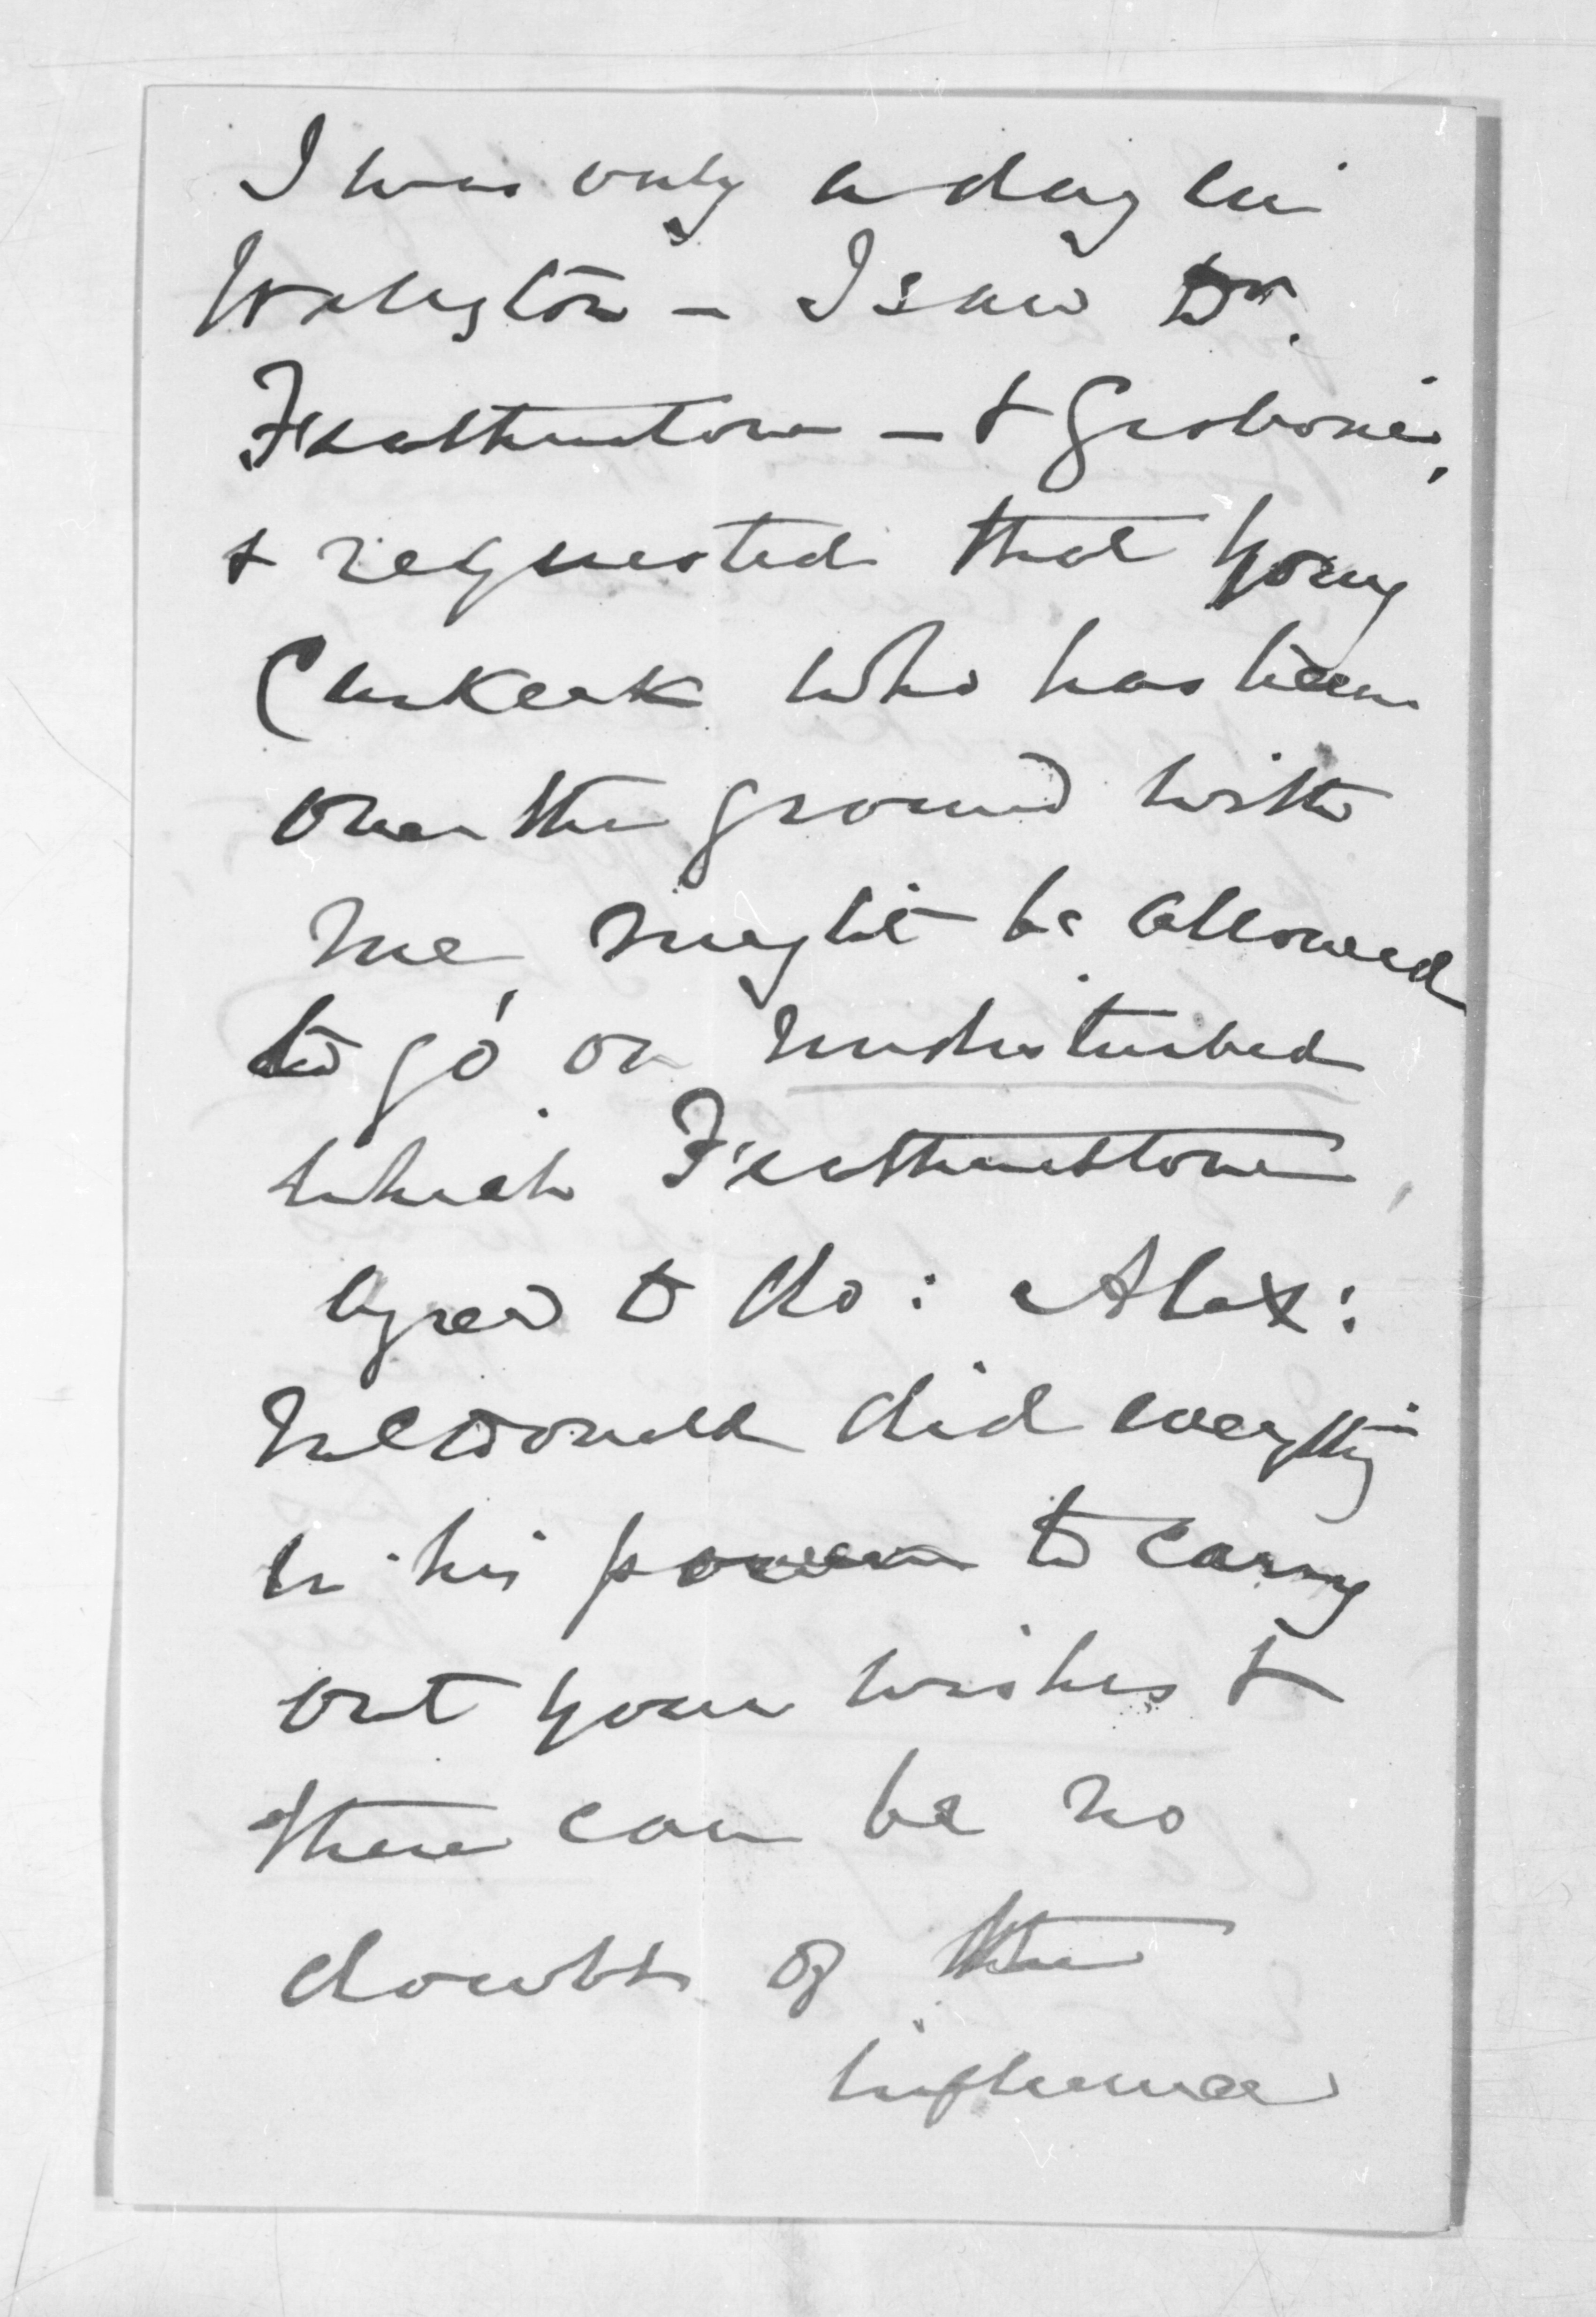 I was only a day in
Welgton – I saw Dr.
Featherston – & Gisborne,
& requested that young
Cuskeek who has been
over the ground with
me, might be allowed
to go on undisturbed
which Featherstone,
agreed to do: Alex:
McDonald did everything
in his power to carry
out your wishes &
there can be no
doubt of the
influence